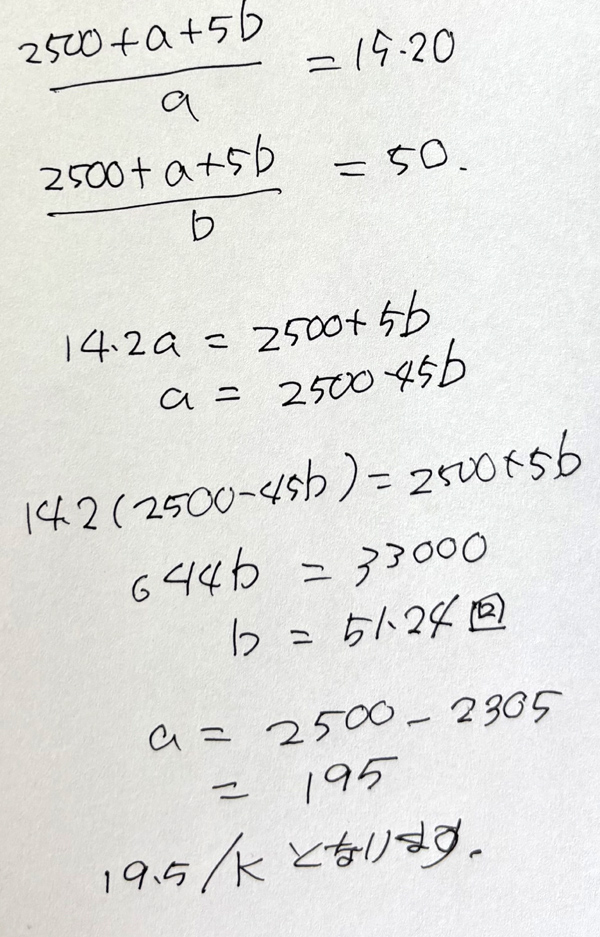 2500+a+5b
─────── = 15.20
a
2500+a+5b
─────── = 50.
b
14.2a = 2500+5b
a = 2500-45b
14.2(2500-45b) = 2500+5b
644b = 33000
b = 51.24回
a = 2500-2305
= 195
19.5/K となります.